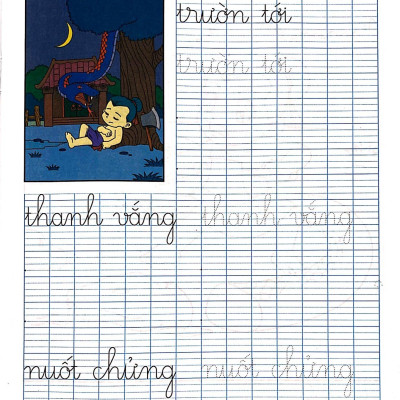 trườn tới
trườn tới
thanh vắng thanh vắng
nuốt chửng nuốt chửng